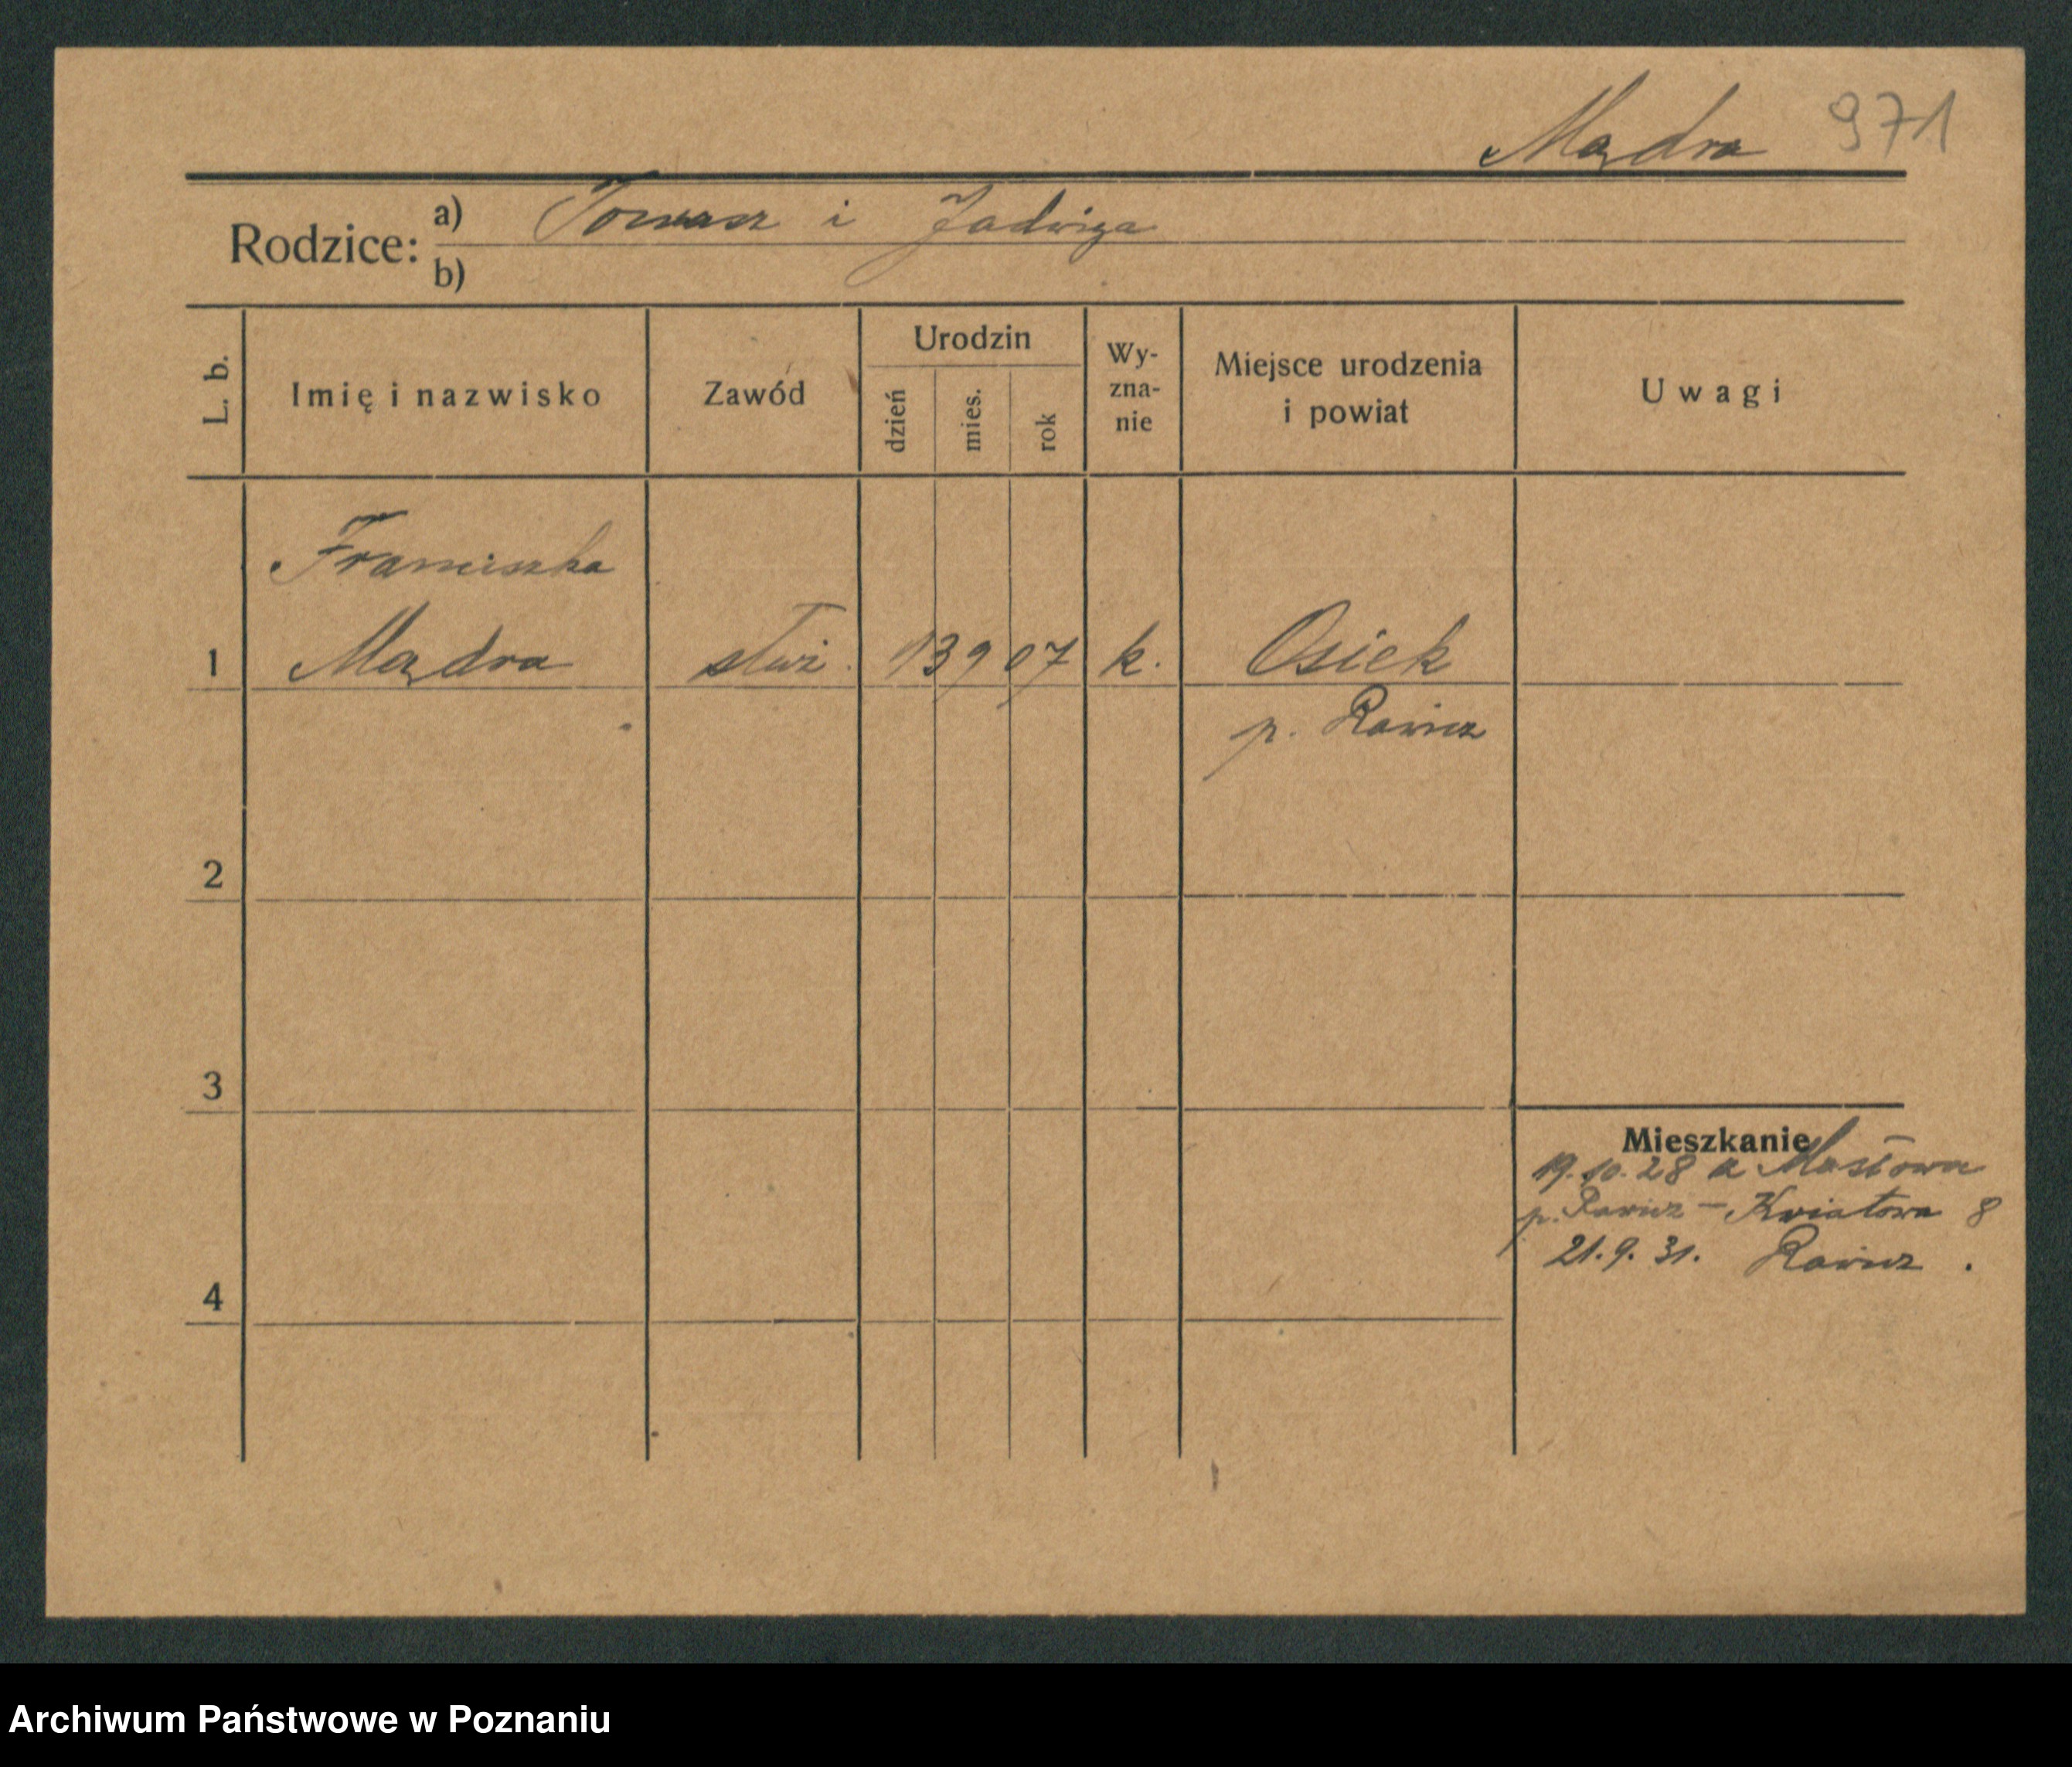 Mądra 971
Rodzice: a) Tomasz i Jadwiga
b)
L. b.
Imię i nazwisko
Zawód
Urodzin
dzień
mies.
rok
Wy-
zna-
nie
Miejsce urodzenia
i powiat
Uwagi
Franciszka
1 Mądra służ. 13 9 07 k. Osiek
p. Rawicz
2
3
Mieszkanie
19.10.28 a Masłowa
p. Rawicz – Kwiatowa 8
21.9.31. Rawicz.
4
Archiwum Państwowe w Poznaniu